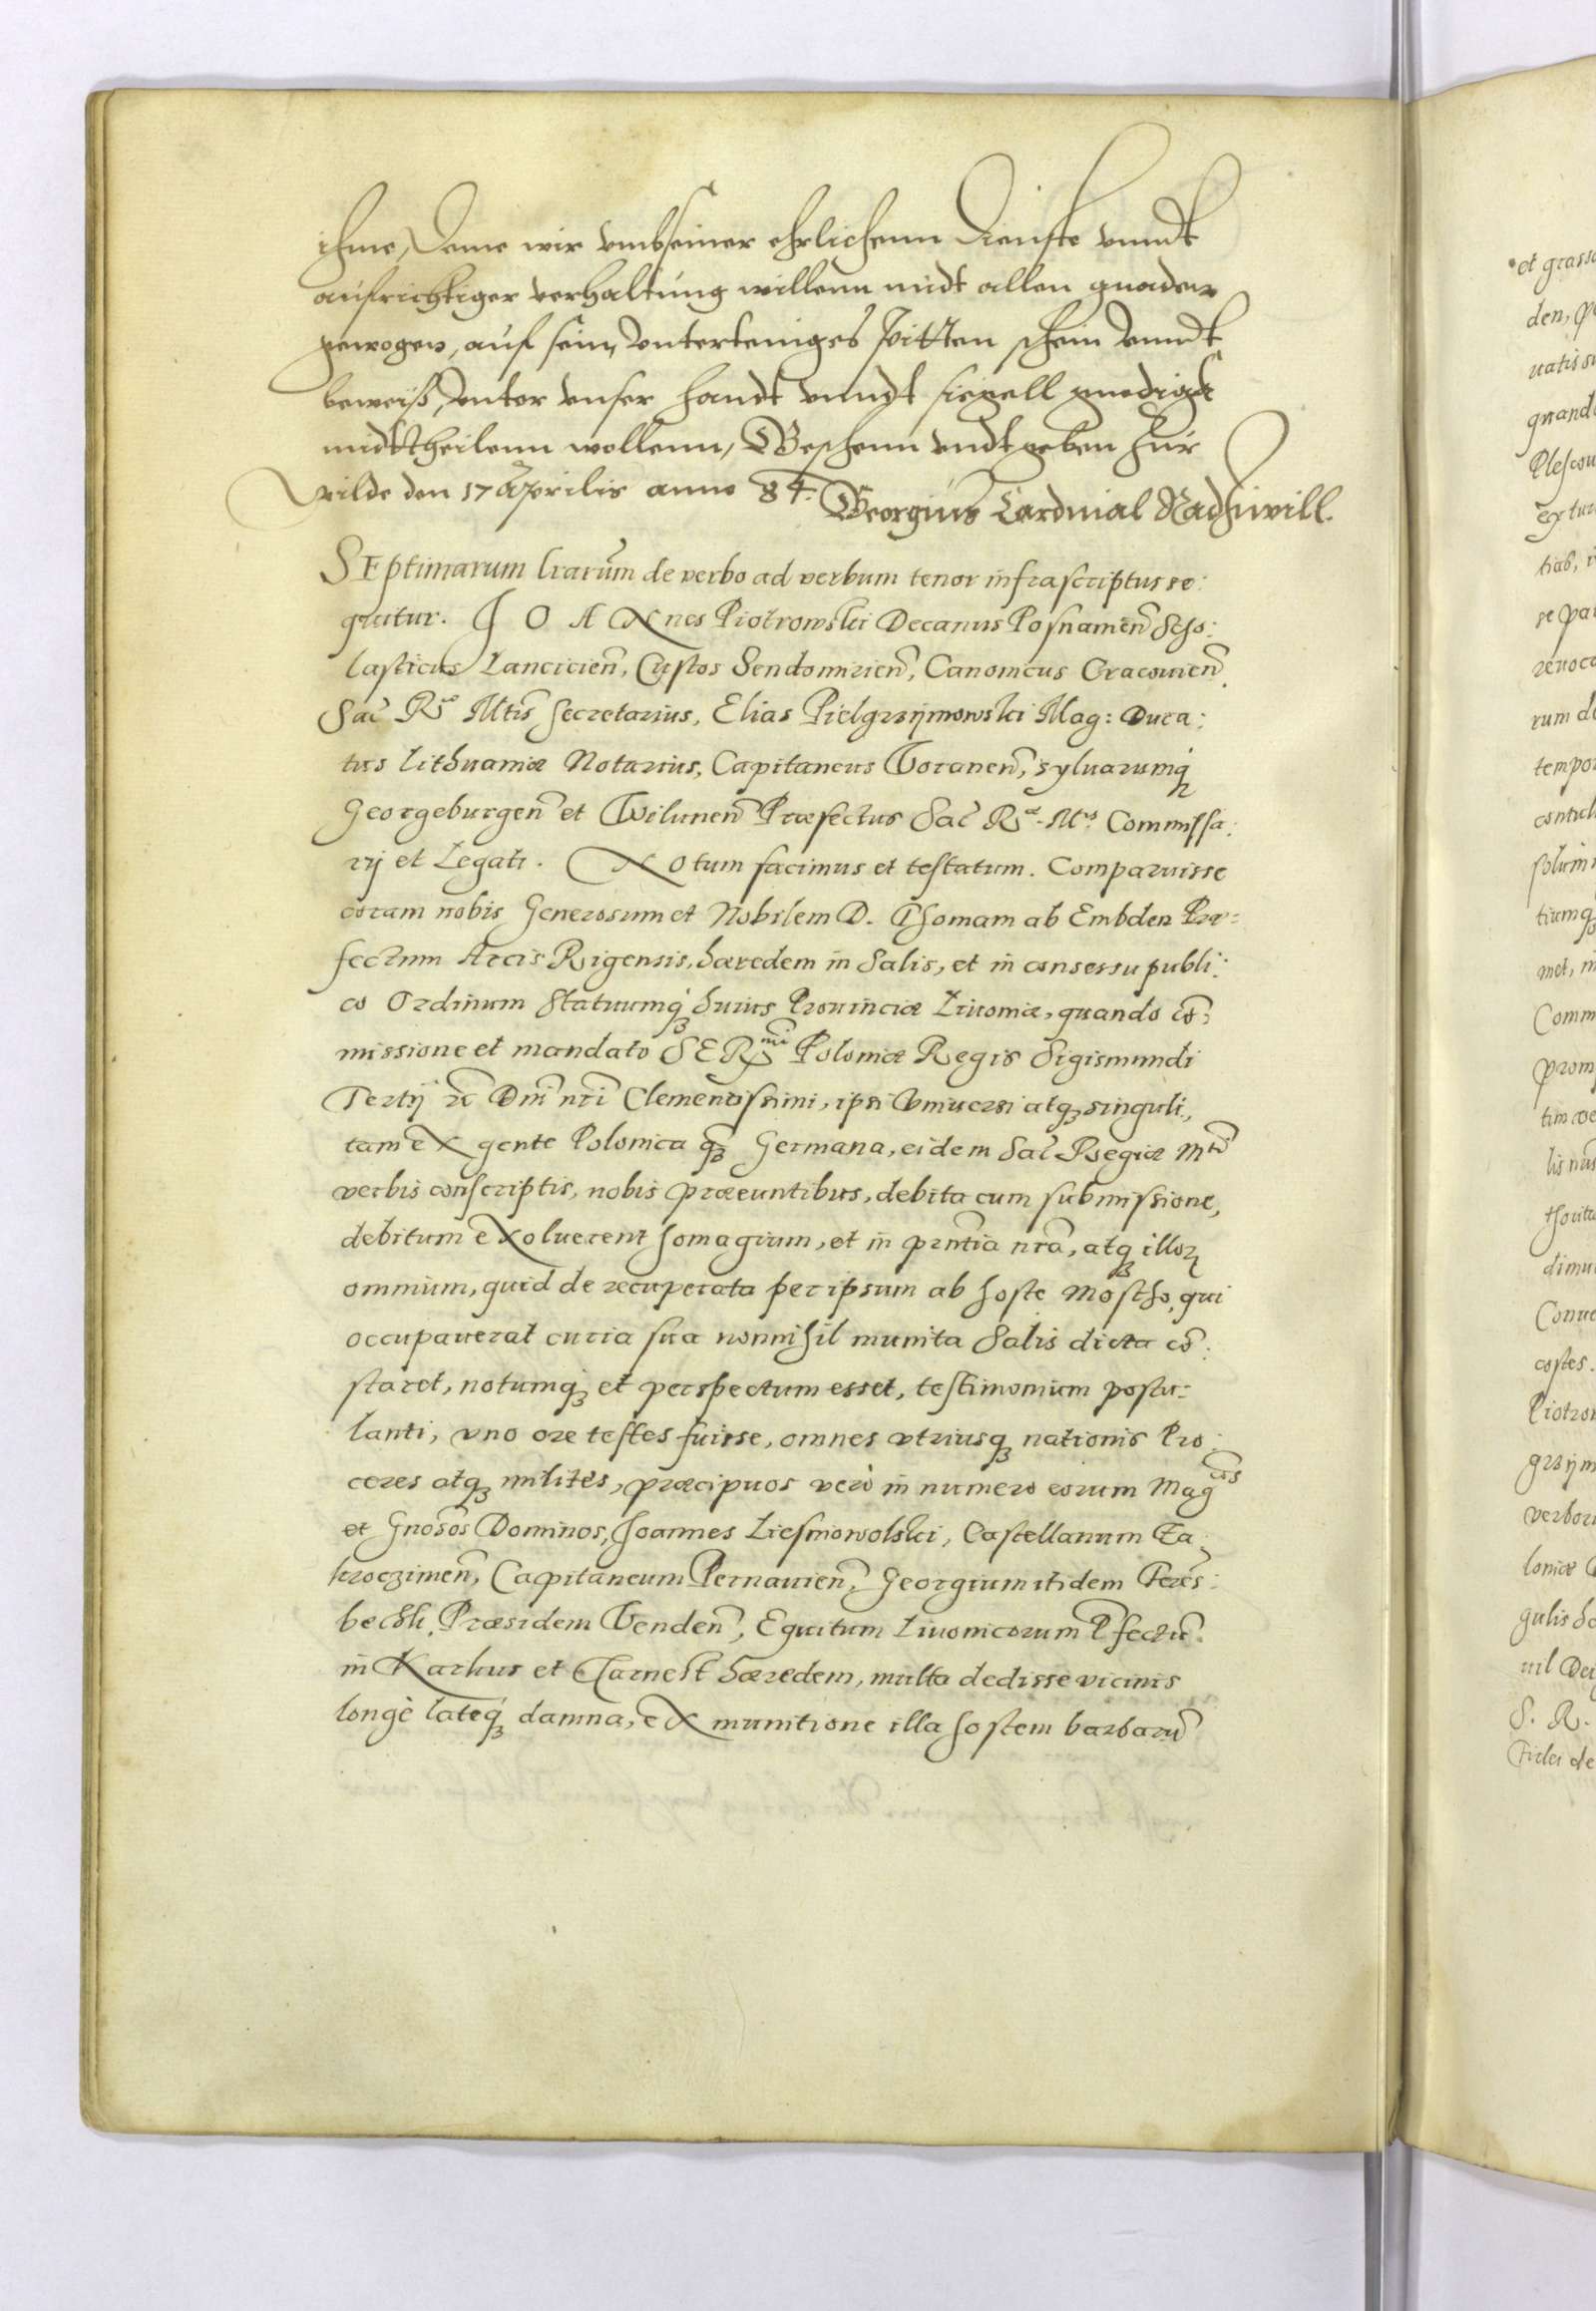 ihme, deme wir vmb seiner ehrlichenn dienste vnndt
aufrichtiger verhaltung willenn midt allen gnaden
gewogen, auf sein vnterteniges bitten schein vnndt
beweiß, vnter vnser handt vnndt siegell gnedigst
midttheilenn wollenn, Geschenn vndt geben Zur
wilde den 17 Aprilis anno 84. Georgius Cardinal Radziwill.
SEptimarum lrarum̃ de verbo ad verbum tenor infrascriptus se:
quitur. JOANnes Piotrowski Decanus Posnameñ Scho:
lasticus Lancicieñ, Custos Sendomirieñ, Canonicus Cracouieñ,
Sac̃ Rᵃᵉ Mtis̃ Secretarius, Elias Pielgrzijmowski Mag: Duca:
tus Lithuaniæ Notarius, Capitaneus Voraneñ, syluarumq́;
Georgeburgeñ et Wiluneñ Præfectus Sac̃ Rᵃᵉ Mᵗⁱˢ Commissa:
rij et Legati. Notum facimus et testatum. Comparuisse
coram nobis Generosum et Nobilem D. Thomam ab Embden Præ=
fectum Arcis Rigensis, hæredem in Salis, et in consessu publi:
co Ordinum Statuumq́; huius Prouinciæ Liuoniæ, quando cõ:
missione et mandato SERᵐⁱ Poloniæ Regis Sigismundi
Tertij ꝛc Dnĩ nrĩ Clementissimi, ipsi Vniuersi atq; singuli,
tam eX gente Polonica q̃; Germana, eidem Sac̃ Regiæ Mᵗⁱ
verbis conscriptis, nobis præeuntibus, debita cum submissione,
debitum eXoluerent homagium, et in prñtia nrã, atq; illoꝝ
omnium, quid de recuperata per ipsum ab hoste Moscho, qui
occupauerat curia sua nonnihil munita Salis dicta cõ:
staret, notumq́; et perspectum esset, testimonium postu=
lanti, vno ore testes fuisse, omnes vtriusq; nationis Pro:
ceres atq; milites, præcipuos verò in numero eorum Magᶜᵒˢ
et Gnosõs Dominos, Joannes Liesniowolski, Castellanum Za:
kroczimeñ, Capitaneum Pernauieñ, Georgium itidem Feres:
bechk, Præsidem Vendeñ, Equitum Liuonicorum P̃fectũ
in Karkus et Tarnest hæredem, multa dedisse vicinis
longè lateq́; damna, eX munitione illa hostem barbarũ